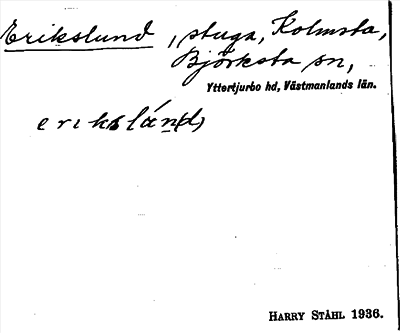 Erikslund, stuga, Kolmsta,
Björksta sn,
Yttertjurbo hd, Västmanlands län.
eriкslán(d)
HARRY STÅHL 1936.